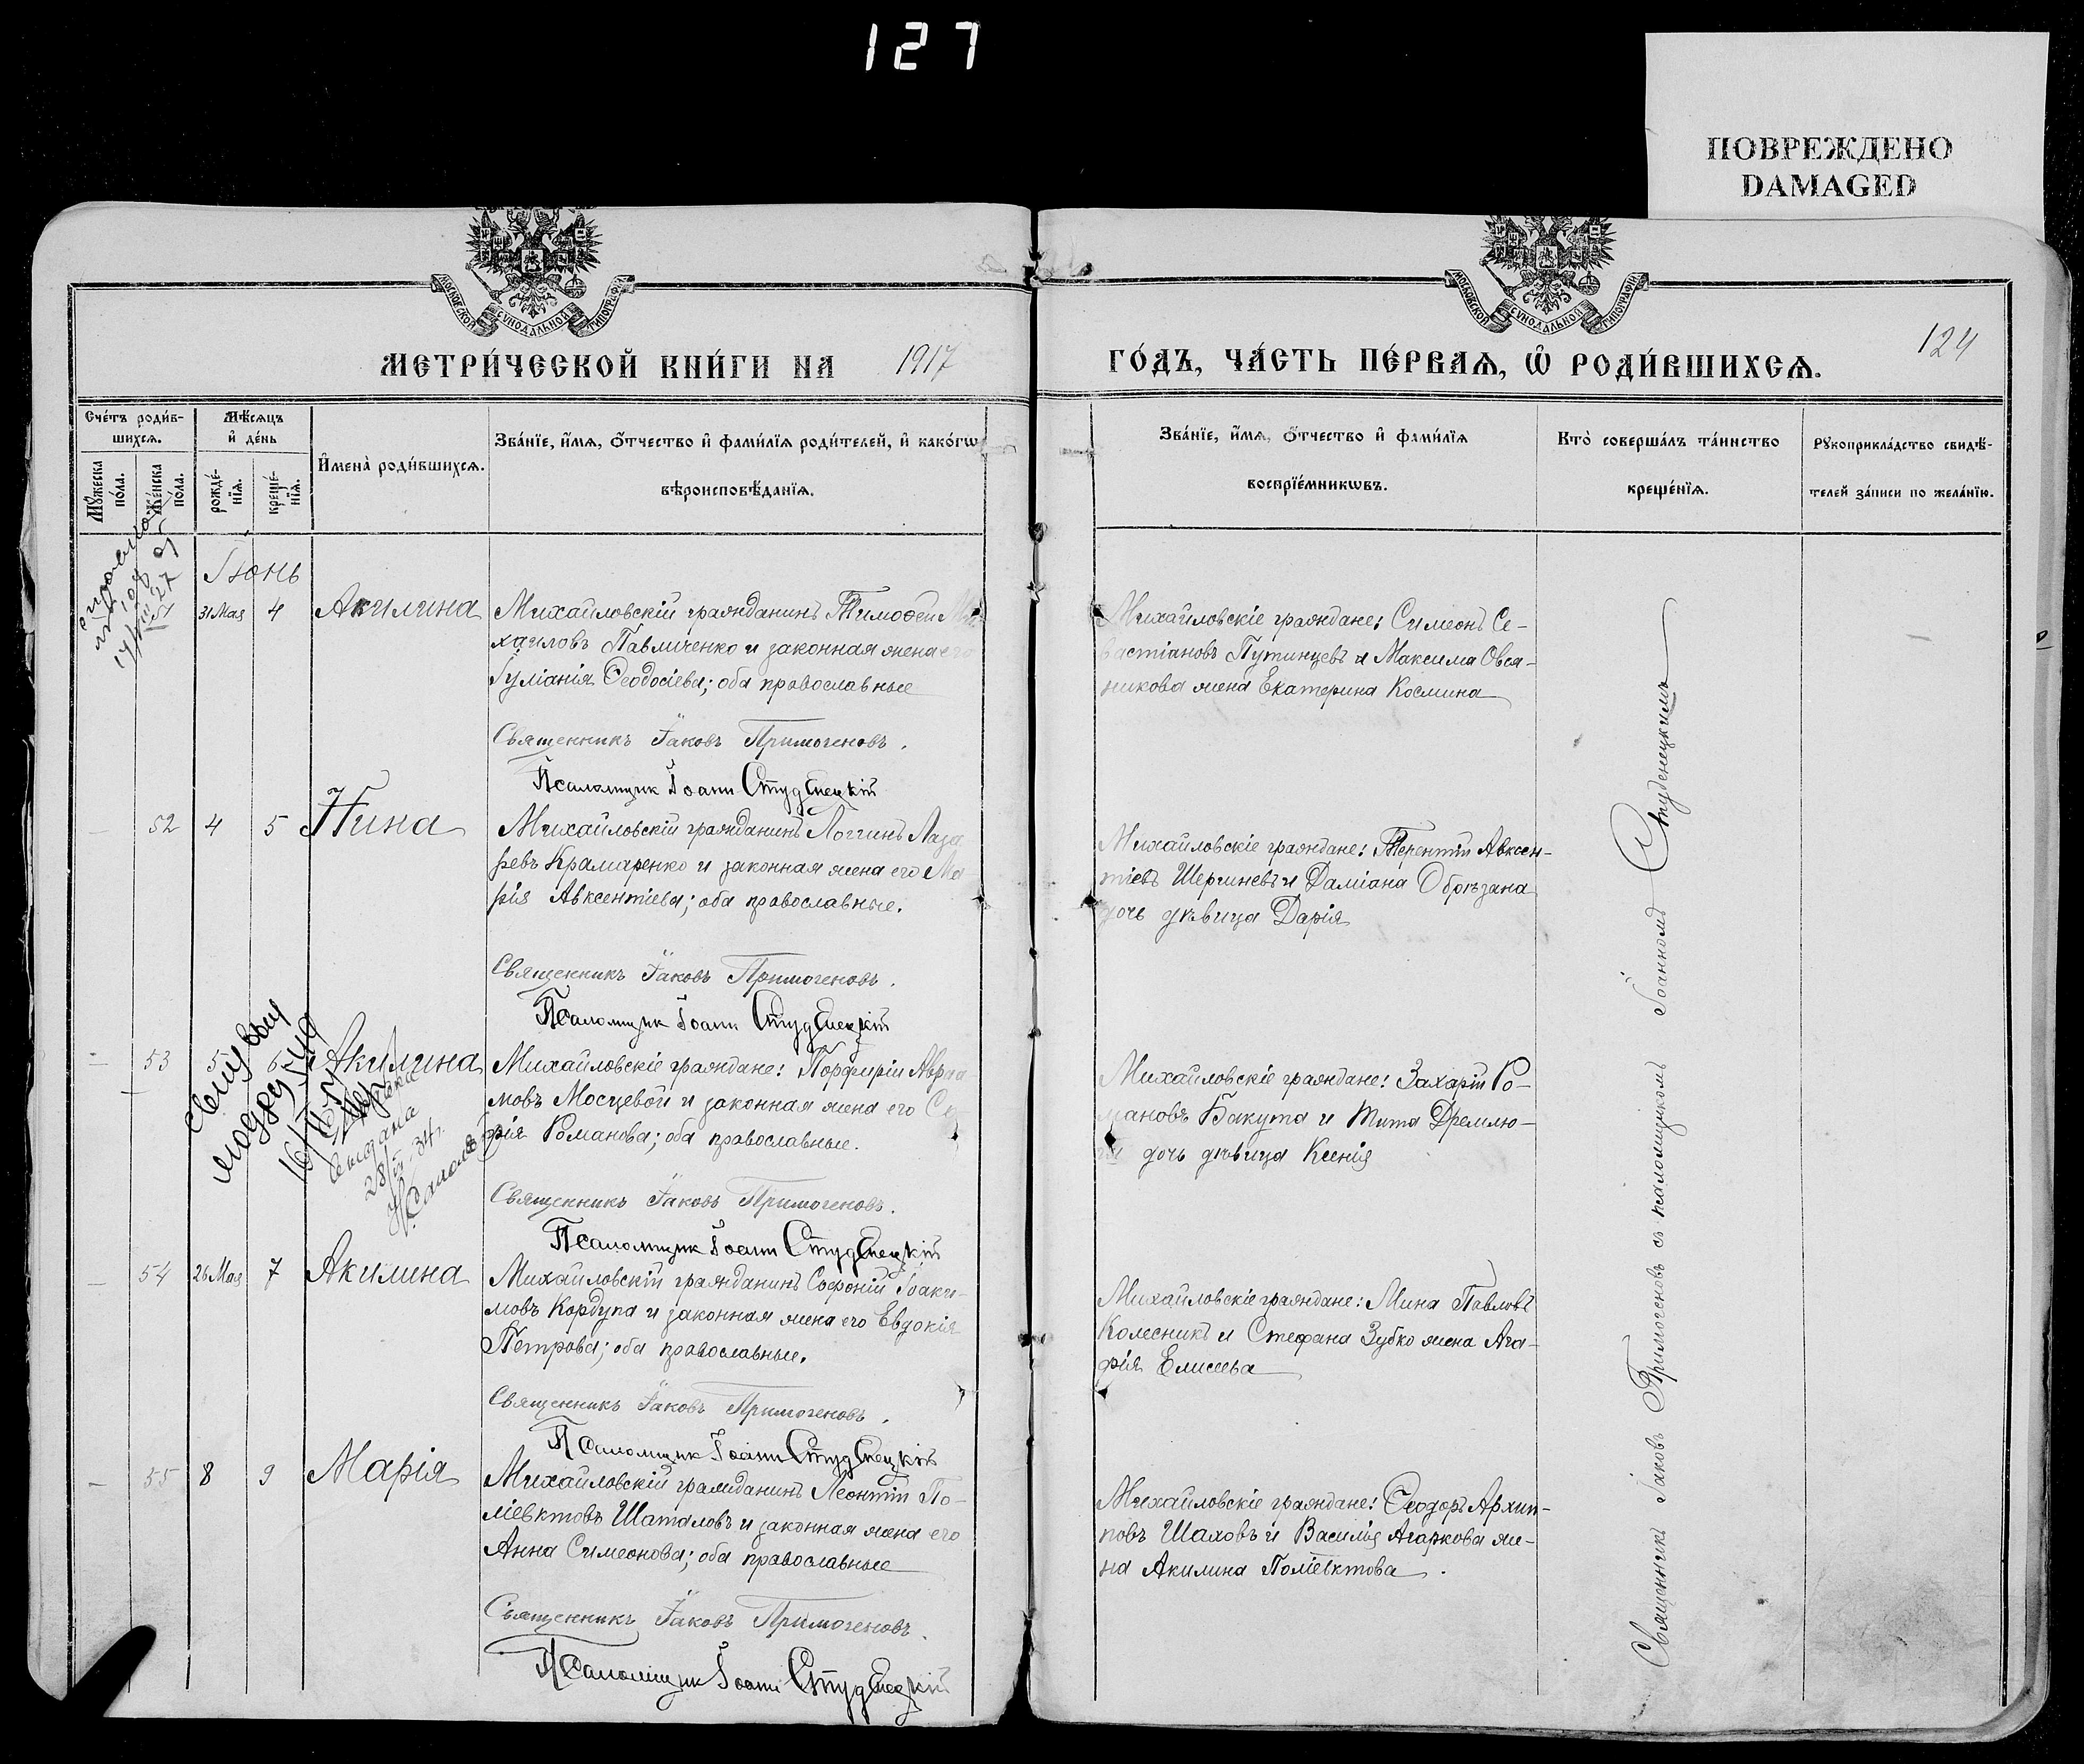 127
ПОВРЕЖДЕНО
DAMAGED
МОСКОВСКОЙ СѴНОДАЛЬНОЙ ТИПОГРАФІИ
МОСКОВСКОЙ СѴНОДАЛЬНОЙ ТИПОГРАФІИ
МЕТРИ́ЧЕСКОЙ КНИ́ГИ НА 1917
ГО́ДЪ, ЧА́СТЬ ПЕ́РВАѦ, Ѡ҆ РОДИ́ВШИХСѦ.
124
Сче́тъ роди́в-
шихсѧ.
Мꙋ́жеска
по́ла.
Же́нска
по́ла.
Мѣ́сѧцъ
и҆ де́нь
рожде́-
нїѧ.
креще́-
нїѧ.
И҆мена̀ роди́вшихсѧ.
Зва́нїе, и҆́мѧ, ѻ҆́тчество и҆ фами́лїѧ роди́телей, и҆ како́гѡ
вѣроисповѣ́данїѧ.
Зва́нїе, и҆́мѧ, ѻ҆́тчество и҆ фами́лїѧ
воспрїе́мникѡвъ.
Кто̀ соверша́лъ та́инство
креще́нїѧ.
Рꙋкоприкла́дство свидѣ́-
телей за́писи по жела́нїю.
Іюнь
51 31 Мая 4 Акилина
Михайловскій гражданинъ Тимоѳей Ми-
хаиловъ Павличенко и законная жена его
Іуліанія Ѳеодосіева; оба православные
Священникъ Іаковъ Примогеновъ.
Псаломщик Іоанн Студенецкій
Михайловскіе граждане: Симеонъ Се-
вастіановъ Путинцевъ и Максима Овся-
никова жена Екатерина Космина
— 52 4 5 Нина
Михайловскій гражданинъ Логгинъ Лаза
ревъ Крамаренко и законная жена его Ма
рія Авксентіева; оба православные.
Священникъ Іаковъ Примогеновъ.
Псаломщик Іоанн Студенецкій
Михайловскіе граждане: Терентій Авксен-
тіевъ Шергиневъ и Даміана Обрѣзана
дочь дѣвица Дарія
— 53 5 6 Акилина
Михайловскіе граждане: Порфирій Авраа
мовъ Мосцевой и законная жена его Со
фія Романова; оба православные.
Священникъ Іаковъ Примогеновъ.
Псаломщик Іоанн Студенецкій
Михайловскіе граждане: Захарій Ро-
мановъ Бакута и Тита Дремлю-
ги дочь дѣвица Ксенія
выдана
— 54 26 Мая 7 Акилина
Михайловскій гражданинъ Софоній Іоаки-
мовъ Кордупа и законная жена его Евдокія
Петрова; оба православные.
Священникъ Іаковъ Примогеновъ.
Псаломщик Іоанн Студенецкій
Михайловскіе граждане: Мина Павловъ
Колесникъ и Стефана Зубко жена Ага-
фія Елисеева
— 55 8 9 Марія
Михайловскій гражданинъ Леонтій По-
ліевктовъ Шаталовъ и законная жена его
Анна Симеонова; оба православные
Священникъ Іаковъ Примогеновъ.
Псаломщик Іоанн Студенецкій
Михайловскіе граждане: Ѳеодоръ Архип-
повъ Шаховъ и Василія Агаркова же-
на Акилина Поліевктова.
Священникъ Іаковъ Примогеновъ съ псаломщикомъ Іоанномъ Студенецкимъ